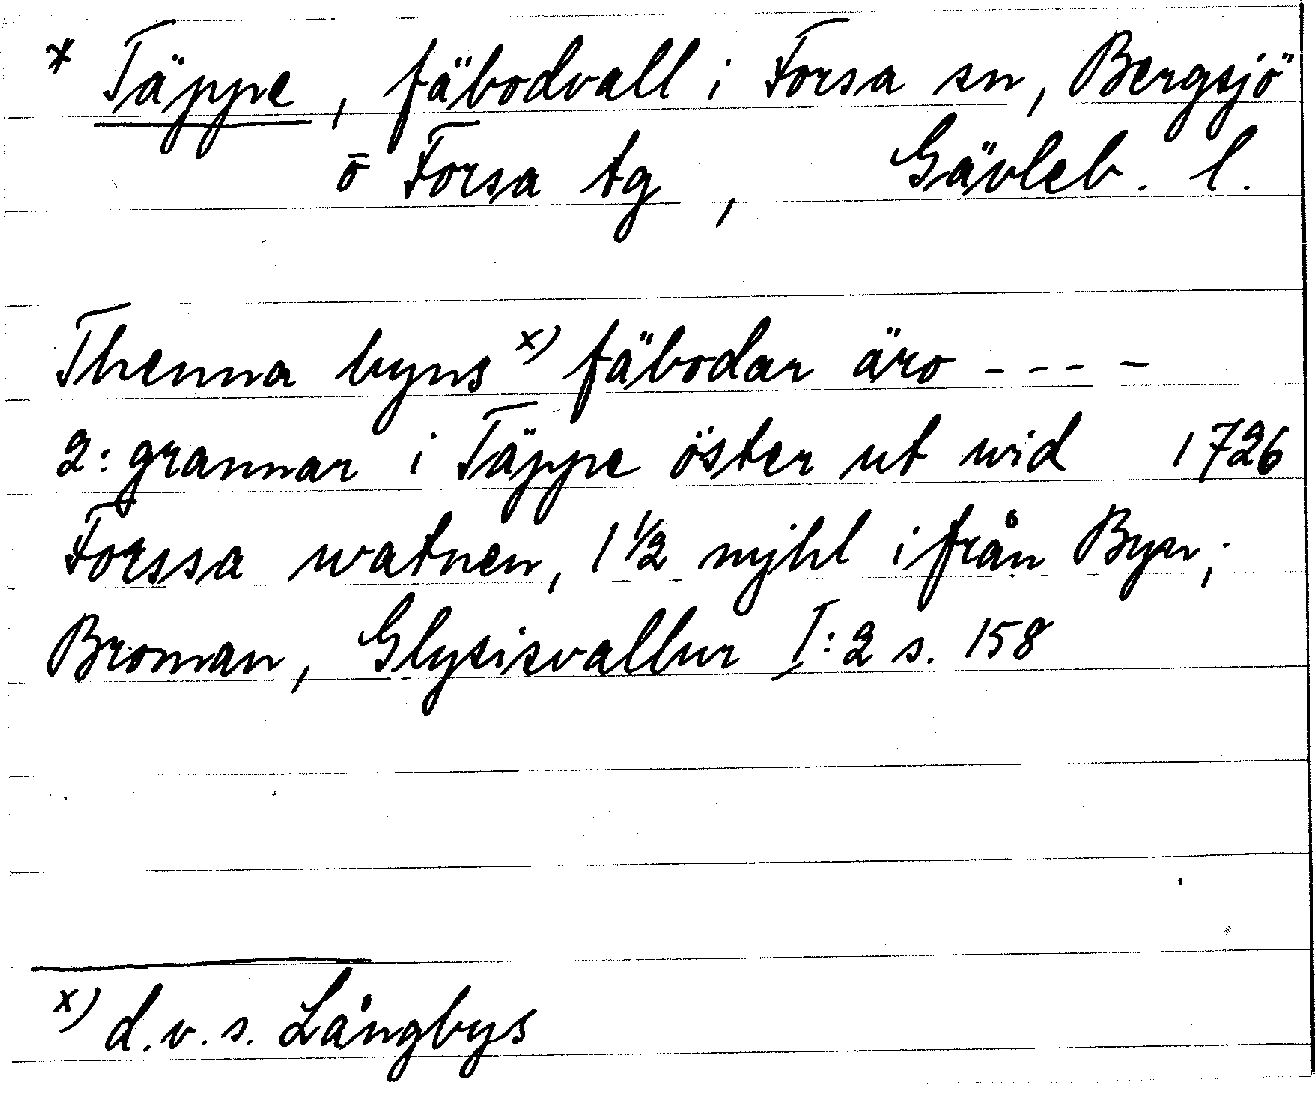 * Täppe, fäbodvall i Forsa sn, Bergsjö
o Forsa tg, Gävleb. l.
Thenna byns x) fäbodar äro - - - -
2: grannar i Täppe öster ut wid 1726
Forssa watnen, 1 1/2 mjhl ifrån Byn;
Broman, Glysisvallur I:2 s. 158
x) d.v.s. Långbys